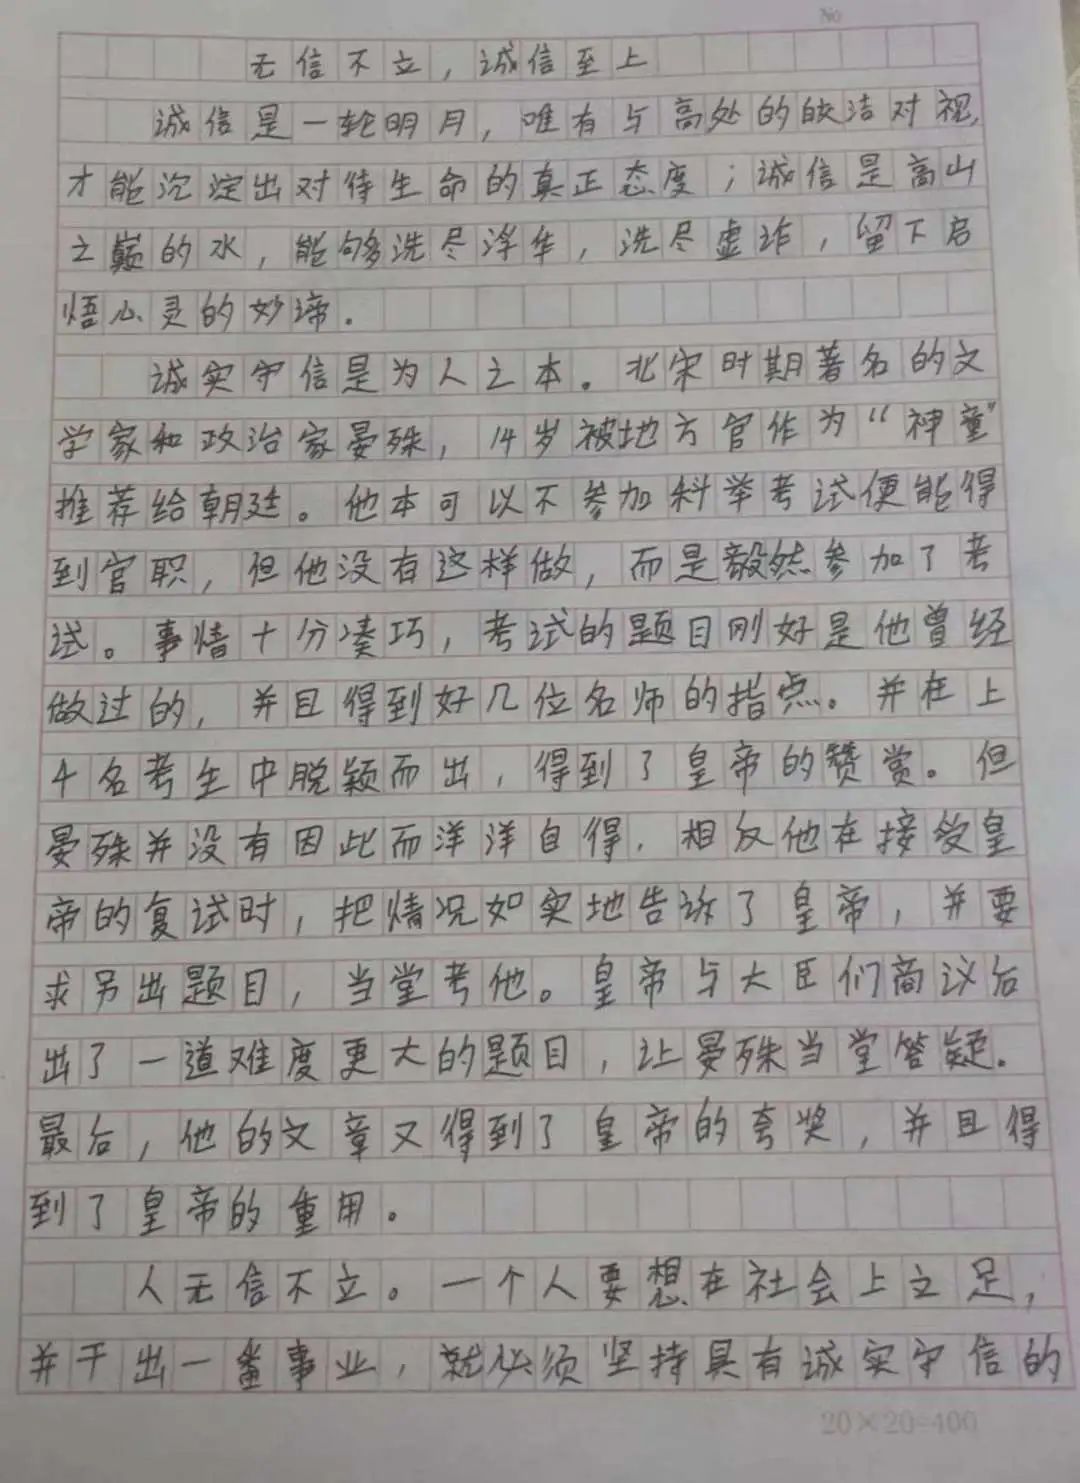 No
无信不立，诚信至上
诚信是一轮明月，唯有与高处的皎洁对视，
才能沉淀出对待生命的真正态度；诚信是高山
之巅的水，能够洗尽浮华，洗尽虚诈，留下启
悟心灵的妙谛．
诚实守信是为人之本。北宋时期著名的文
学家和政治家晏殊，14岁被地方官作为“神童”
推荐给朝廷。他本可以不参加科举考试便能得
到官职，但他没有这样做，而是毅然参加了考
试。事情十分凑巧，考试的题目刚好是他曾经
做过的，并且得到好几位名师的指点。并在上
千名考生中脱颖而出，得到了皇帝的赞赏。但
晏殊并没有因此而洋洋自得．相反他在接受皇
帝的复试时，把情况如实地告诉了皇帝，并要
求另出题目，当堂考他。皇帝与大臣们商议后
出了一道难度更大的题目，让晏殊当堂答疑．
最后，他的文章又得到了皇帝的夸奖，并且得
到了皇帝的重用。
人无信不立。一个人要想在社会上立足，
并干出一番事业，就必须坚持具有诚实守信的
20×20=400